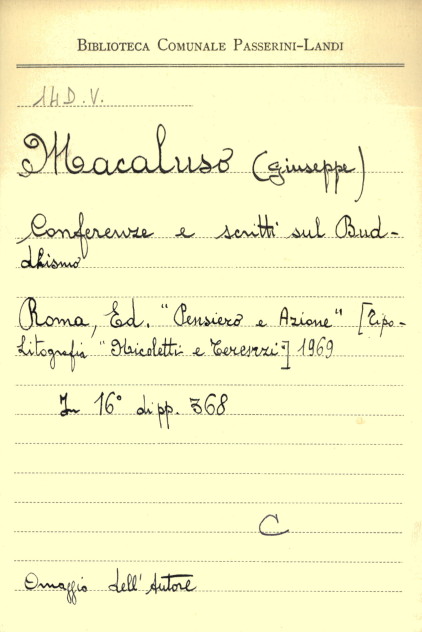 BIBLIOTECA COMUNALE PASSERINI-LANDI
14 D. V.
Macaluso (Giuseppe)
Conferenze e scritti sul Bud-
dhismo
Roma, Ed. "Pensiero e Azione" [Tipo-
Litografia "Nicoletti e Terenzi"] 1969
In 16° di pp. 368
C
Omaggio dell'Autore